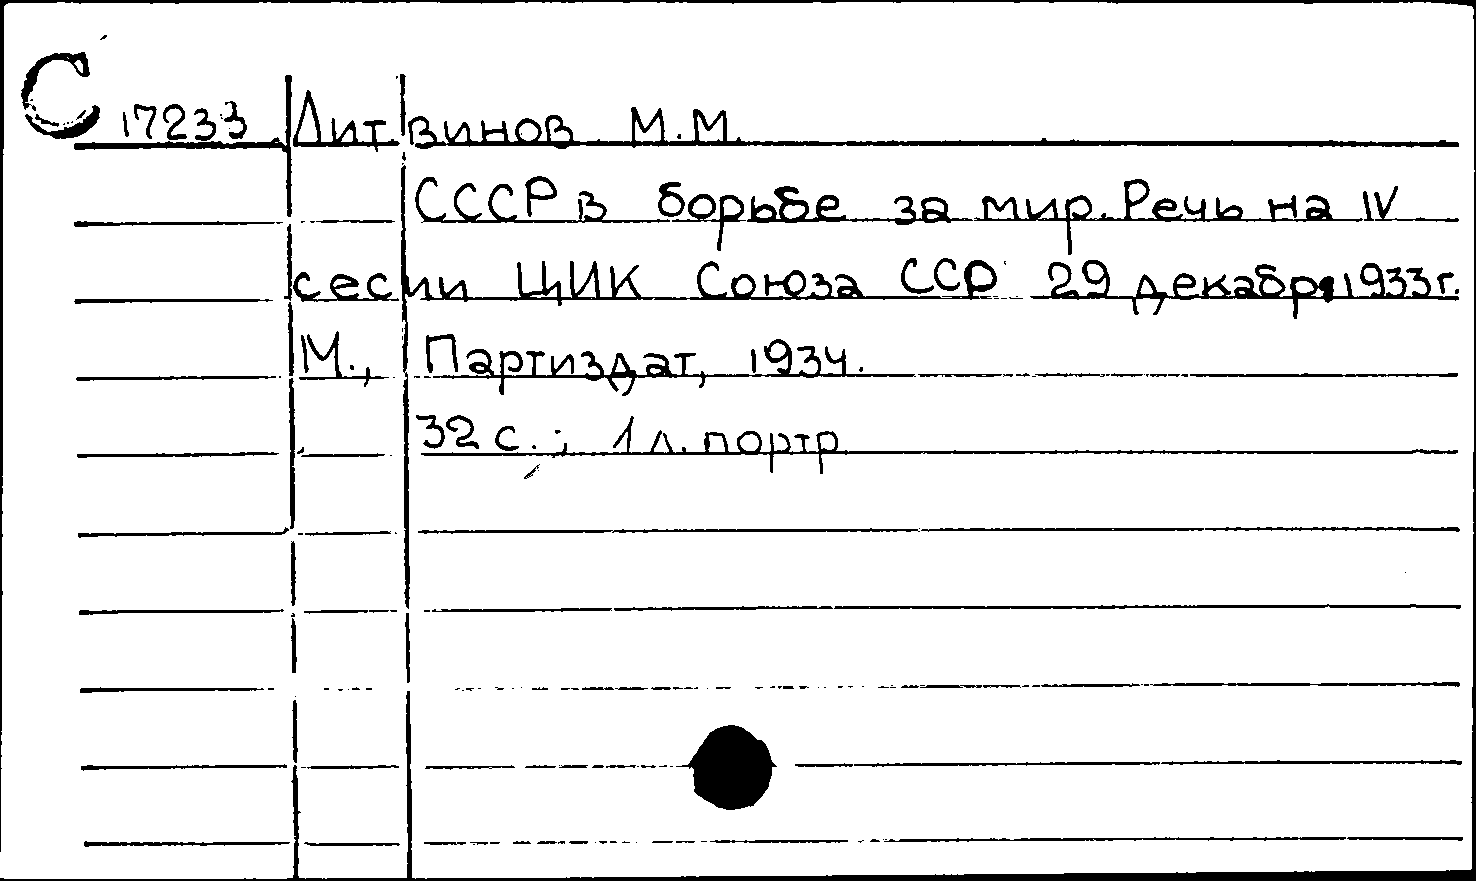 С 17233 Литвинов М.М.
СССР в борьбе за мир. Речь на IV
сесии ЦИК Союза ССР 29 декабря 1933 г.
М., Партиздат, 1934.
32 с.; 1 л. портр